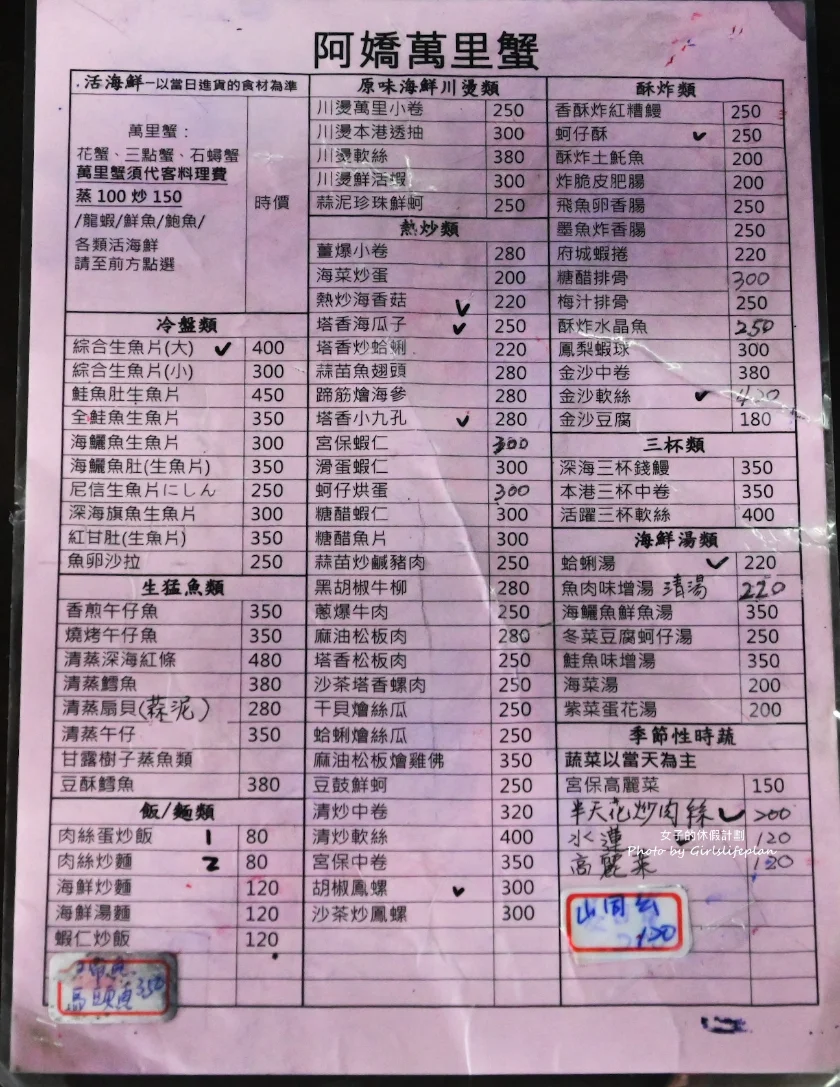 阿嬌萬里蟹
活海鮮—以當日進貨的食材為準
萬里蟹：
花蟹、三點蟹、石蟳蟹
萬里蟹須代客料理費
蒸100炒150
/龍蝦/鮮魚/鮑魚/
各類活海鮮
請至前方點選
時價
冷盤類
綜合生魚片(大) ✓ 400
綜合生魚片(小) 300
鮭魚肚生魚片 450
全鮭魚生魚片 350
海鱺魚生魚片 300
海鱺魚肚(生魚片) 350
尼信生魚片にしん 250
深海旗魚生魚片 300
紅甘肚(生魚片) 350
魚卵沙拉 250
生猛魚類
香煎午仔魚 350
燒烤午仔魚 350
清蒸深海紅條 480
清蒸鱈魚 380
清蒸扇貝(蒜泥) 280
清蒸午仔 350
甘露樹子蒸魚類
豆酥鱈魚 380
飯/麵類
肉絲蛋炒飯 1 80
肉絲炒麵 2 80
海鮮炒麵 120
海鮮湯麵 120
蝦仁炒飯 120
馬頭魚 350
原味海鮮川燙類
川燙萬里小卷 250
川燙本港透抽 300
川燙軟絲 380
川燙鮮活蝦 300
蒜泥珍珠鮮蚵 250
熱炒類
薑爆小卷 280
海菜炒蛋 200
熱炒海香菇 ✓ 220
塔香海瓜子 ✓ 250
塔香炒蛤蜊 220
蒜苗魚翅頭 280
蹄筋燴海參 280
塔香小九孔 ✓ 280
宮保蝦仁 300
滑蛋蝦仁 300
蚵仔烘蛋 300
糖醋蝦仁 300
糖醋魚片 300
蒜苗炒鹹豬肉 250
黑胡椒牛柳 280
蔥爆牛肉 250
麻油松板肉 280
塔香松板肉 250
沙茶塔香螺肉 250
干貝燴絲瓜 250
蛤蜊燴絲瓜 250
麻油松板燴雞佛 350
豆鼓鮮蚵 250
清炒中卷 320
清炒軟絲 400
宮保中卷 350
胡椒鳳螺 ✓ 300
沙茶炒鳳螺 300
酥炸類
香酥炸紅糟鰻 250
蚵仔酥 ✓ 250
酥炸土魠魚 200
炸脆皮肥腸 200
飛魚卵香腸 250
墨魚炸香腸 250
府城蝦捲 220
糖醋排骨 300
梅汁排骨 250
酥炸水晶魚 250
鳳梨蝦球 300
金沙中卷 380
金沙軟絲 ✓ 400
金沙豆腐 180
三杯類
深海三杯錢鰻 350
本港三杯中卷 350
活躍三杯軟絲 400
海鮮湯類
蛤蜊湯 ✓ 220
魚肉味增湯 清湯 220
海鱺魚鮮魚湯 350
冬菜豆腐蚵仔湯 250
鮭魚味增湯 350
海菜湯 200
紫菜蛋花湯 200
季節性時蔬
蔬菜以當天為主
宮保高麗菜 150
半天花炒肉絲 ✓ 200
水蓮 120
高麗菜 120
女子的休假計劃
Photo by Girlslifeplan
120